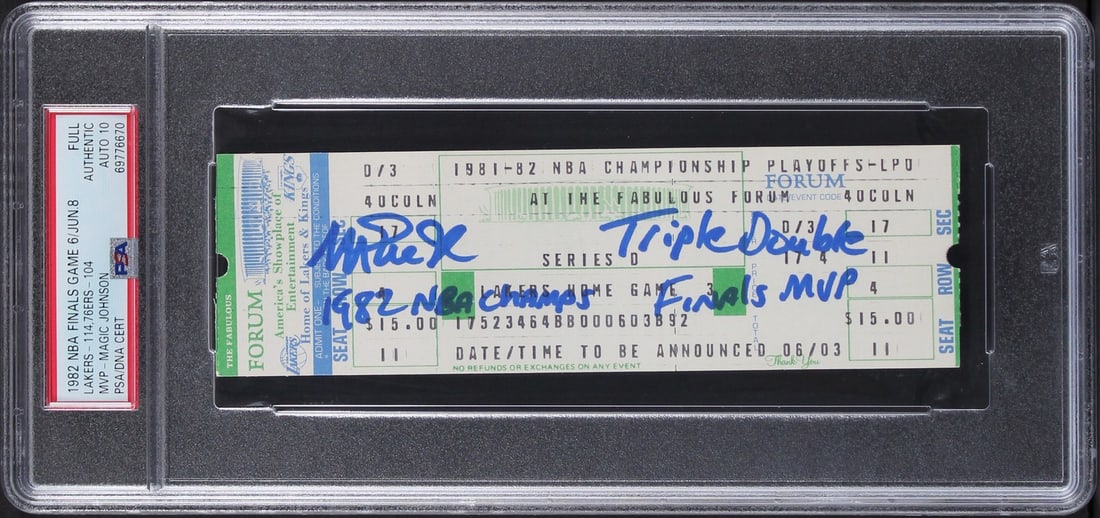 1982 NBA FINALS GAME 6/JUN.8 FULL
LAKERS - 114,76ERS - 104 AUTHENTIC
MVP - MAGIC JOHNSON AUTO 10
PSA/DNA CERT 69776670
PSA
THE FABULOUS
FORUM
America's Showplace of
Entertainment
Home of Lakers & Kings
KINGS
LAKERS
SEAT ROW SEC
D/3 1981-82 NBA CHAMPIONSHIP PLAYOFFS-LPD
FORUM
EVENT CODE
40COLN AT THE FABULOUS FORUM 40COLN
17 D/3 17
Triple Double
SERIES D 17 4 11
4 LAKERS HOME GAME 3 4
1982 NBA Champs Finals MVP
$15.00 17523464BB000603B92 $15.00
11 DATE/TIME TO BE ANNOUNCED 06/03 11
NO REFUNDS OR EXCHANGES ON ANY EVENT
Thank You
SEAT ROW SEC